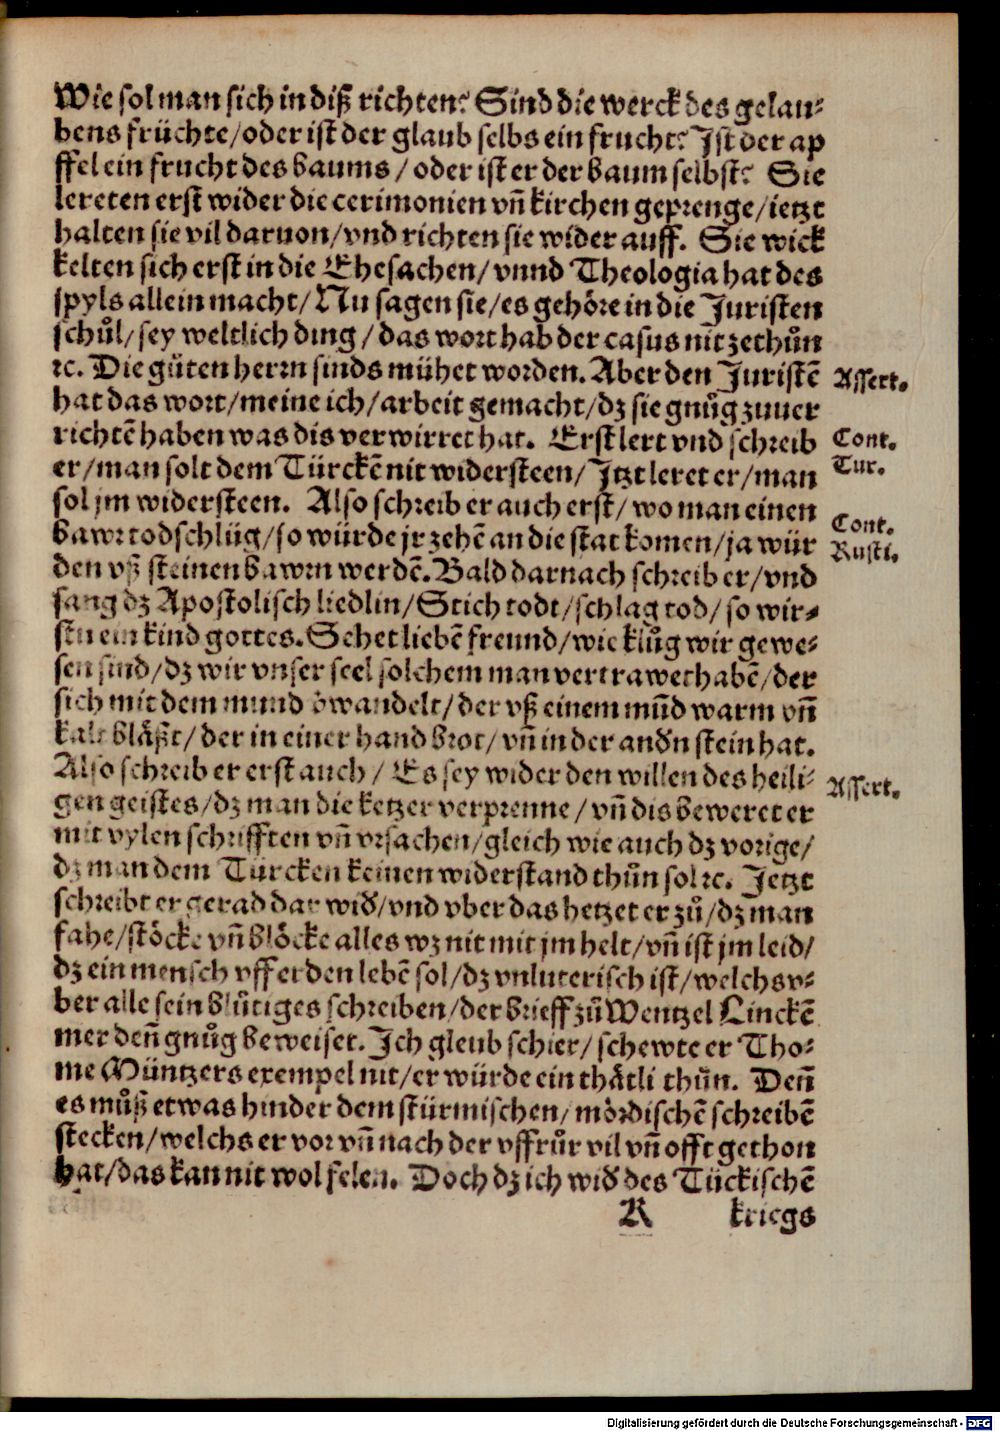 Wie sol man sich in diß richten? Sind die werck des gelau-
bens früchte/oder ist der glaub selbs ein frucht? Ist der ap
ffel ein frucht des baums/oder ist er der baum selbst? Sie
lereten erst wider die cerimonien vn̄ kirchen geprenge/ietzt
halten sie vil daruon/vnd richten sie wider auff. Sie wick
kelten sich erst in die Ehesachen/vnnd Theologia hat des
spyls allein macht/Nu sagen sie/es gehöre in die Juristen
schůl/sey weltlich ding/das wort hab der casus nit zethůn
ꝛc. Die gůten herrn sinds mühet worden. Aber den Juristē
Assert.
hat das wort/meine ich/arbeit gemacht/dz sie gnůg zuuer
richtē haben was dis verwirret hat. Erst lert vnd schreib
Cont.
er/man solt dem Türckē nit widersteen/Jtzt leret er/man
Tur.
sol jm widersteen. Also schreib er auch erst/wo man einen
Cont.
bawr todschlüg/so würde jr zehē an die stat komen/ja wür
Rusti.
den vß steinen bawrn werdē. Bald darnach schreib er/vnd
sang dz Apostolisch liedlin/Stich todt/schlag tod/so wir-
stu ein kind gottes. Sehet liebē freund/wie klůg wir gewe-
sen sind/dz wir vnser seel solchem man vertrawet habē/der
sich mit dem mund v̄wandelt/der vß einem mūd warm vn̄
kalt bläßt/der in einer hand brot/vn̄ in der andn̄ stein hat.
Also schreib er erst auch/Es sey wider den willen des heili-
Assert.
gen geistes/dz man die ketzer verprenne/vn̄ dis beweret er
mit vylen schrifften vn̄ vrsachen/gleich wie auch dz vorige/
dz man dem Türcken keinen widerstand thůn sol ꝛc. Jetzt
schreibt er gerad dar wid̄/vnd vber das hetzet er zů/dz man
fahe/stöcke vn̄ blöcke alles wz nit mit jm helt/vn̄ ist jm leid/
dz ein mensch vff erden lebē sol/dz vnluterisch ist/welchs v-
ber alle sein blůtiges schreiben/der brieff zů Wentzel Linckē
mer den̄ gnůg beweiset. Ich gleub schier/schewte er Tho-
me Müntzers exempel nit/er würde ein thätli thůn. Den̄
es můß etwas hinder dem stürmischen/mördischē schreibē
stecken/welchs er vor vn̄ nach der vffrůr vil vn̄ offt gethon
hat/das kan nit wol felen. Doch dz ich wid̄ des Tückischē
R kriegs
Digitalisierung gefördert durch die Deutsche Forschungsgemeinschaft - DFG